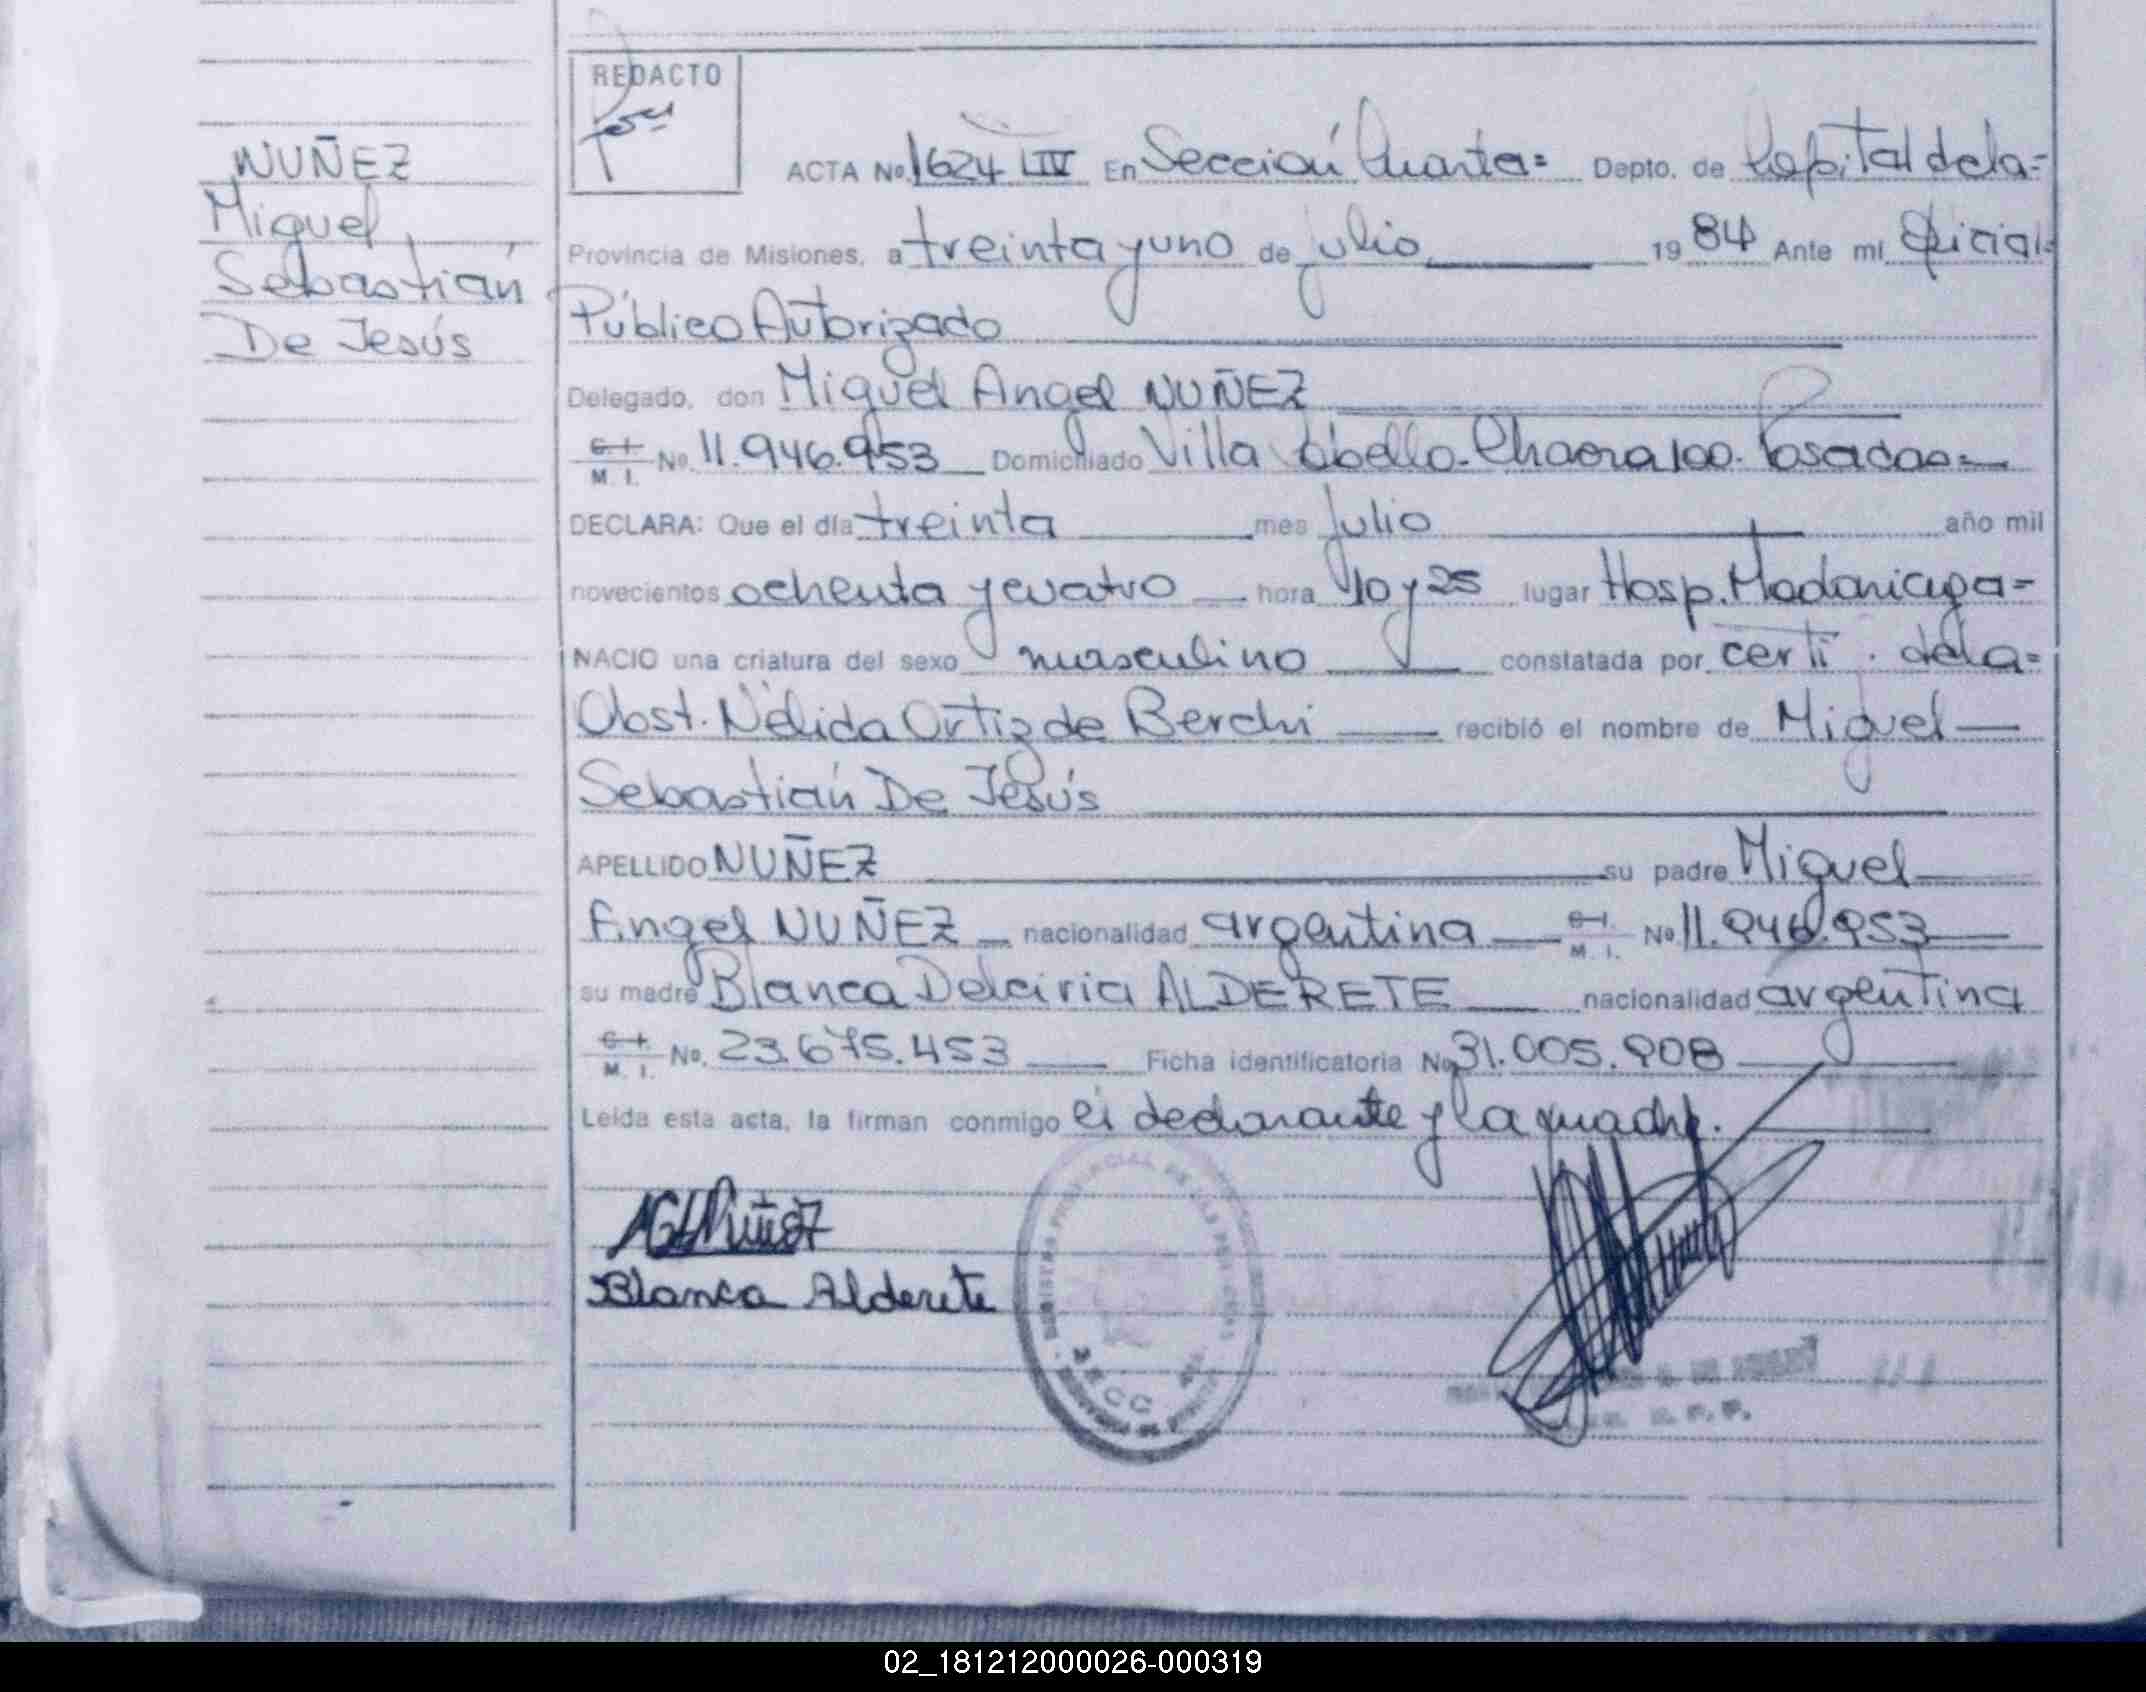 REDACTO
NUÑEZ
Miguel
Sebastián
De Jesús
ACTA No. 1624 LIV En Sección Cuarta= Depto. de Capital de la=
Provincia de Misiones, a treinta y uno de julio 1984 Ante mi Oficial=
Público Autorizado
Delegado, don Miguel Angel NUÑEZ
C. I. M. I. No. 11.946.953 Domiciliado Villa Cabello. Chacra 100. Posadas=
DECLARA: Que el día treinta mes julio año mil
novecientos ochenta y cuatro hora 10 y 25 lugar Hosp. Madariaga=
NACIO una criatura del sexo masculino constatada por certi. de la=
Obst. Nélida Ortiz de Berchi recibió el nombre de Miguel
Sebastián De Jesús
APELLIDO NUÑEZ su padre Miguel
Angel NUÑEZ nacionalidad argentina C. I. M. I. No. 11.946.953
su madre Blanca Delciria ALDERETE nacionalidad argentina
C. I. M. I. No. 23.675.453 Ficha identificatoria No. 31.005.908
Leida esta acta, la firman conmigo el declarante y la madre.
Blanca Alderete
02_181212000026-000319